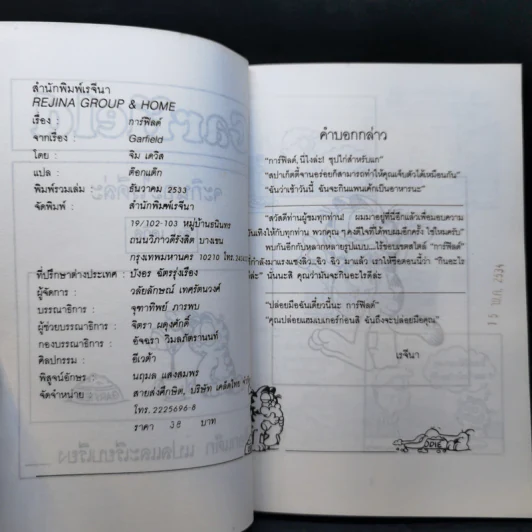 สำนักพิมพ์เรจีนา
REJINA GROUP & HOME
เรื่อง : การ์ฟิลด์
จากเรื่อง : Garfield
โดย : จิม เดวิส
แปล : ต๊อกแต็ก
พิมพ์รวมเล่ม : ธันวาคม 2533
จัดพิมพ์ : สำนักพิมพ์เรจีนา
19/102-103 หมู่บ้านอนินทร
ถนนวิภาวดีรังสิต บางเขน
กรุงเทพมหานคร 10210 โทร.
ที่ปรึกษาต่างประเทศ : บังอร ฉัตรรุ่งเรือง
ผู้จัดการ : วลัยลักษณ์ เทศรัตนวงศ์
บรรณาธิการ : จุฑาทิพย์ ภารพบ
ผู้ช่วยบรรณาธิการ : จิตรา ผดุงศักดิ์
กองบรรณาธิการ : อัจฉรา วิมลภัตรานนท์
ศิลปกรรม : อีเวต้า
พิสูจน์อักษร : นฤมล แสงสมพร
จัดจำหน่าย : สายส่งศึกษิต, บริษัท เคล็ดไทย
โทร.2225696-8
ราคา 38 บาท
คำบอกกล่าว
"การ์ฟิลด์, นี่ไงล่ะ! ซุปไก่สำหรับแก"
"สปาเก็ตตี้จานอร่อยก็สามารถทำให้คุณเจ็บตัวได้เหมือนกัน"
"ฉันว่าเช้าวันนี้ ฉันจะกินแพนเค้กเป็นอาหารนะ"
"สวัสดีท่านผู้ชมทุกท่าน! ผมมาอยู่ที่นี่อีกแล้วเพื่อมอบความ
บันเทิงให้กับทุกท่าน พวกคุณ ๆ คงดีใจที่ได้พบผมอีกครั้ง ใช่ไหมครับ!
พบกันอีกกับหลากหลายรูปแบบ...ไร้ขอบเขตสไตล์ "การ์ฟิลด์"
กำลังมาแรงแซงลิ่ว...ฉิว ฉิว มาแล้ว เราให้ชื่อตอนนี้ว่า "กินอะไร
ดีล่ะ" นั่นนะสิ คุณว่ามันจะกินอะไรดีล่ะ
"ปล่อยมือฉันเดี๋ยวนี้นะ การ์ฟิลด์"
"คุณปล่อยแฮมเบเกอร์ก่อนสิ ฉันถึงจะปล่อยมือคุณ"
เรจีนา
ODIE